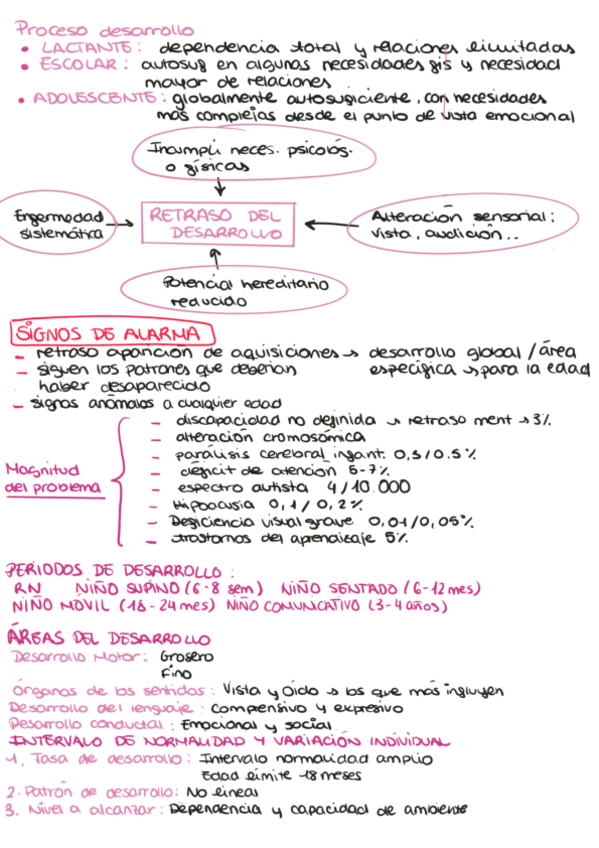 Proceso desarrollo
• LACTANTE: dependencia total y relaciones limitadas
• ESCOLAR: autosuf en algunas necesidades fis y necesidad
mayor de relaciones
• ADOLESCENTE: globalmente autosuficiente, con necesidades
más complejas desde el punto de vista emocional
Incumpli neces. psicológ.
o físicas
Enfermedad
sistemática
RETRASO DEL
DESARROLLO
Alteración sensorial:
vista, audición..
Potencial hereditario
reducido
SIGNOS DE ALARMA
- retraso aparición de aquisiciones → desarrollo global / área
- siguen los patrones que deberían específica → para la edad
haber desaparecido
- signos anómalos a cualquier edad
Magnitud
del problema
- discapacidad no definida → retraso ment → 3%
- alteración cromosómica
- parálisis cerebral infant. 0,3/0.5%
- déficit de atención 5-7%
- espectro autista 4/10.000
- Hipoacusia 0,1/0,2%
- Deficiencia visual grave 0,01/0,05%
- trastornos del aprendizaje 5%
PERIODOS DE DESARROLLO:
RN NIÑO SUPINO (6-8 sem) NIÑO SENTADO (6-12 mes)
NIÑO MÓVIL (18-24 mes) NIÑO COMUNICATIVO (3-4 años)
ÁREAS DEL DESARROLLO
Desarrollo Motor: Grosero
Fino
Órganos de los sentidos: Vista y Oído → los que más influyen
Desarrollo del lenguaje: Compensivo y expresivo
Desarrollo conductal: Emocional y social
INTERVALO DE NORMALIDAD Y VARIACIÓN INDIVIDUAL
1. Tasa de desarrollo: Intervalo normalidad amplio
Edad límite -18 meses
2. Patrón de desarrollo: No lineas
3. Nivel a alcanzar: Dependencia y capacidad de ambiente